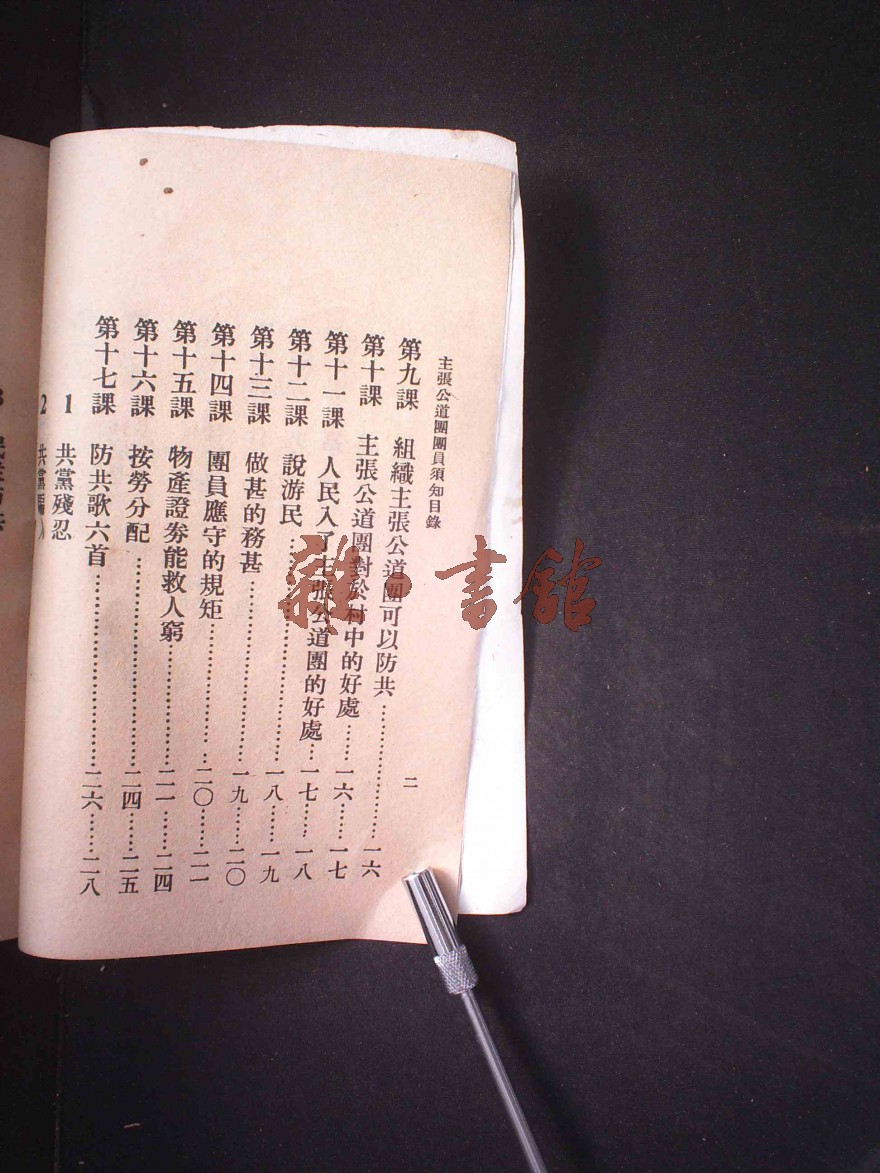 主張公道團團員須知目錄
二
第九課 組織主張公道團可以防共……………………一六
第十課 主張公道團對於村中的好處……一六……一七
第十一課 人民入了主張公道團的好處…一七……一八
第十二課 說游民……………………一八……一九
第十三課 做甚的務甚……………………一九……二〇
第十四課 團員應守的規矩……………二〇……二一
第十五課 物產證劵能救人窮……………二一……二四
第十六課 按勞分配……………………二四……二五
第十七課 防共歌六首……………………二六……二八
1 共黨殘忍
2 共黨騙人
雜·書館